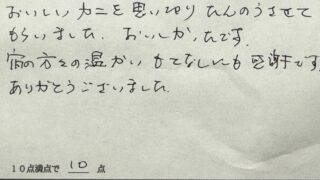 おいしいカニを思いっきりたんのうさせて
もらいました。おいしかったです。
宿の方々の温かいもてなしにも感謝です。
ありがとうございました。
10点満点で 10 点